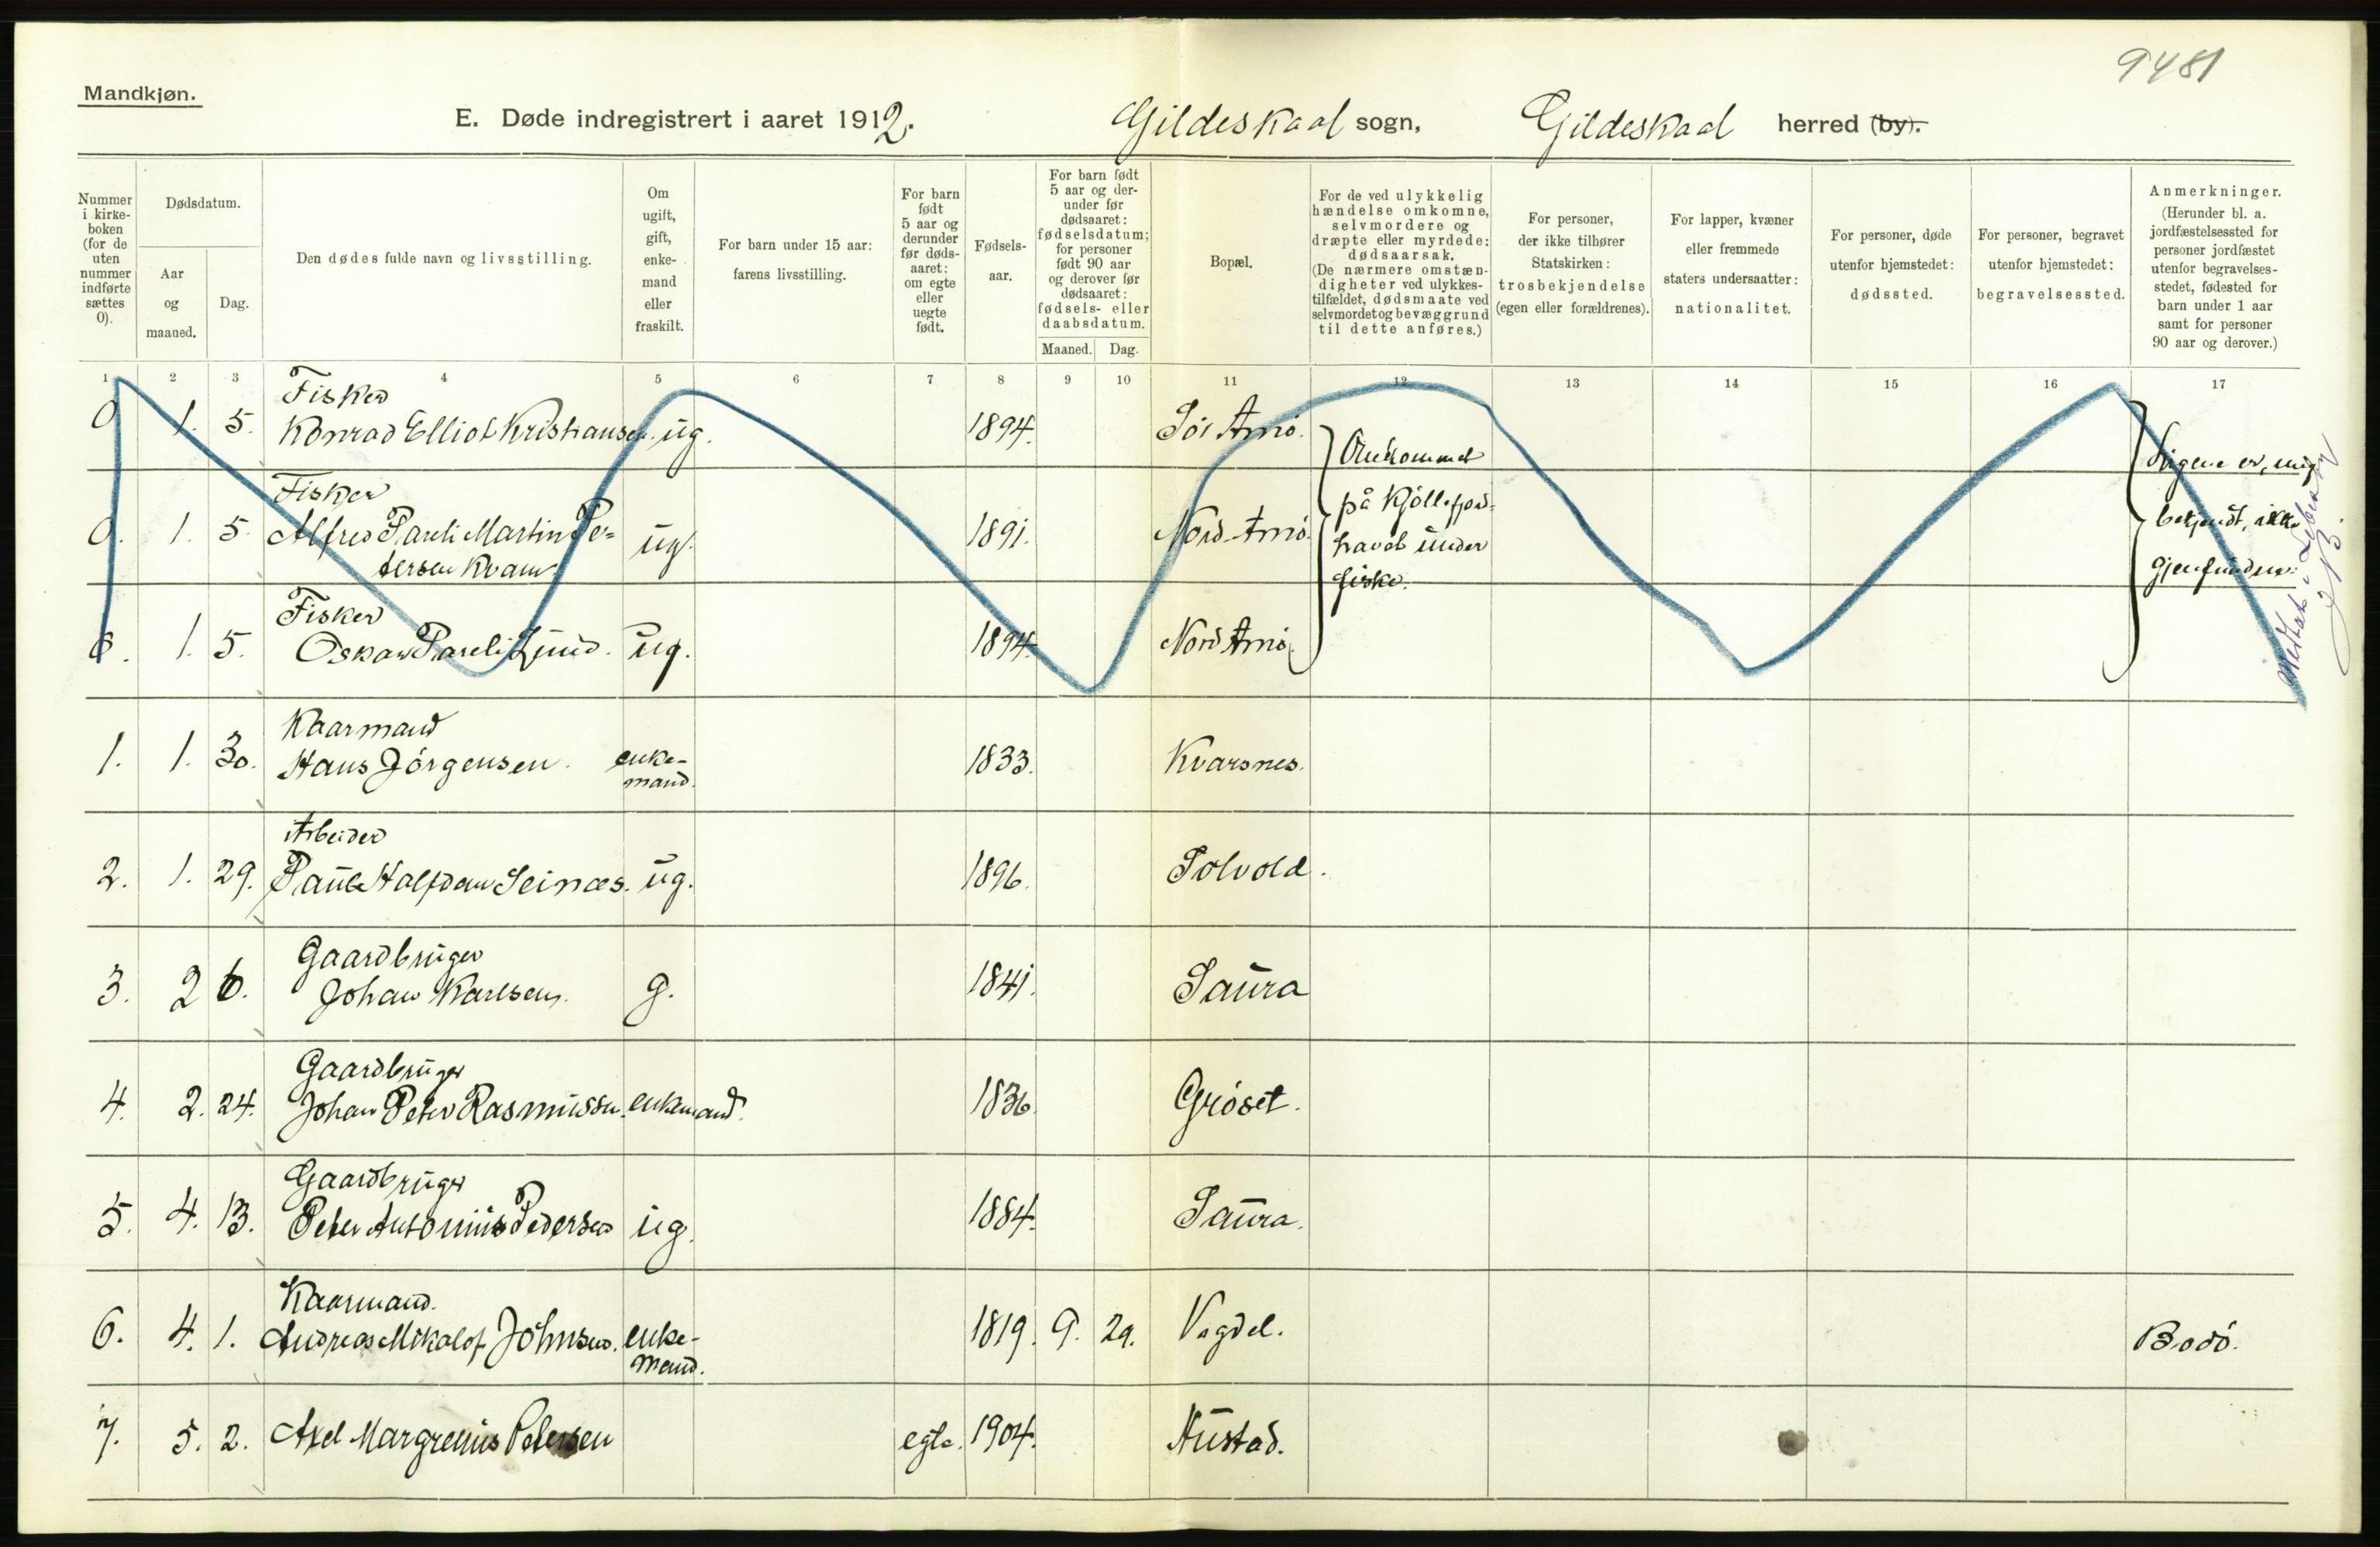 9481
Mandkjøn.
E. Døde indregistrert i aaret 1912.
Gildeskaal sogn, Gildeskaal herred (by).
Nummer i kirke- boken (for de uten nummer indførte sættes 0).
Dødsdatum.
Aar og maaned.
Dag.
Den dødes fulde navn og livsstilling.
Om ugift, gift, enke- mand eller fraskilt.
For barn under 15 aar: farens livsstilling.
For barn født 5 aar og derunder før døds- aaret: om egte eller uegte født.
Fødsels- aar.
For barn født 5 aar og der- under før dødsaaret: fødselsdatum; for personer født 90 aar og derover før dødsaaret: fødsels- eller daabsdatum.
Maaned. Dag.
Bopæl.
For de ved ulykkelig hændelse omkomne, selvmordere og dræpte eller myrdede: dødsaarsak. (De nærmere omstæn- digheter ved ulykkes- tilfældet, dødsmaate ved selvmordet og bevæggrund til dette anføres.)
For personer, der ikke tilhører Statskirken: trosbekjendelse (egen eller forældrenes).
For lapper, kvæner eller fremmede staters undersaatter: nationalitet.
For personer, døde utenfor hjemstedet: dødssted.
For personer, begravet utenfor hjemstedet: begravelsessted.
Anmerkninger. (Herunder bl. a. jordfæstelsessted for personer jordfæstet utenfor begravelses- stedet, fødested for barn under 1 aar samt for personer 90 aar og derover.)
1 2 3 4 5 6 7 8 9 10 11 12 13 14 15 16 17
Fisker
0 1. 5. Konrad Elliot Kristiansen. ug. 1894. Sör Arnö.
Omkommet
Ligene er, mig
Fisker
på Kjöllefjord-
0. 1. 5. Alfred Pareli Martin Pe- ug. 1891. Nord-Arnö.
bekjendt, ikke
havet under
tersen Kvam.
gjenfundne.
fiske.
Fisker
0. 1. 5. Oskar Pareli Lund. ug. 1894. Nord Arnö
Kaarmand
1. 1. 30. Hans Jörgensen. enke- 1833. Kvarsnes.
mand.
Arbeider
2. 1. 29. Paul Halfdan Seinæs. ug. 1896. Solvold.
Gaardbruger
3. 2 6. Johan Karlsen. g. 1841. Saura
Gaardbruger
4. 2. 24. Johan Peter Rasmussen. enkemand. 1836. Gröset.
Gaardbruger
5. 4. 13. Peter Antonius Pedersen ug. 1884. Saura.
Kaarmand.
6. 4. 1. Andreas Mikalof Johnsen. enke- 1819. 9. 29. Vagdal. Bodö.
mand.
7. 5. 2. Axel Margrenius Petersen egte. 1904. Nustad.